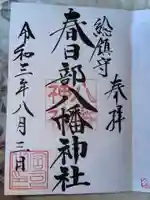 奉拝
総鎮守
春日部八幡神社
令和三年八月三日